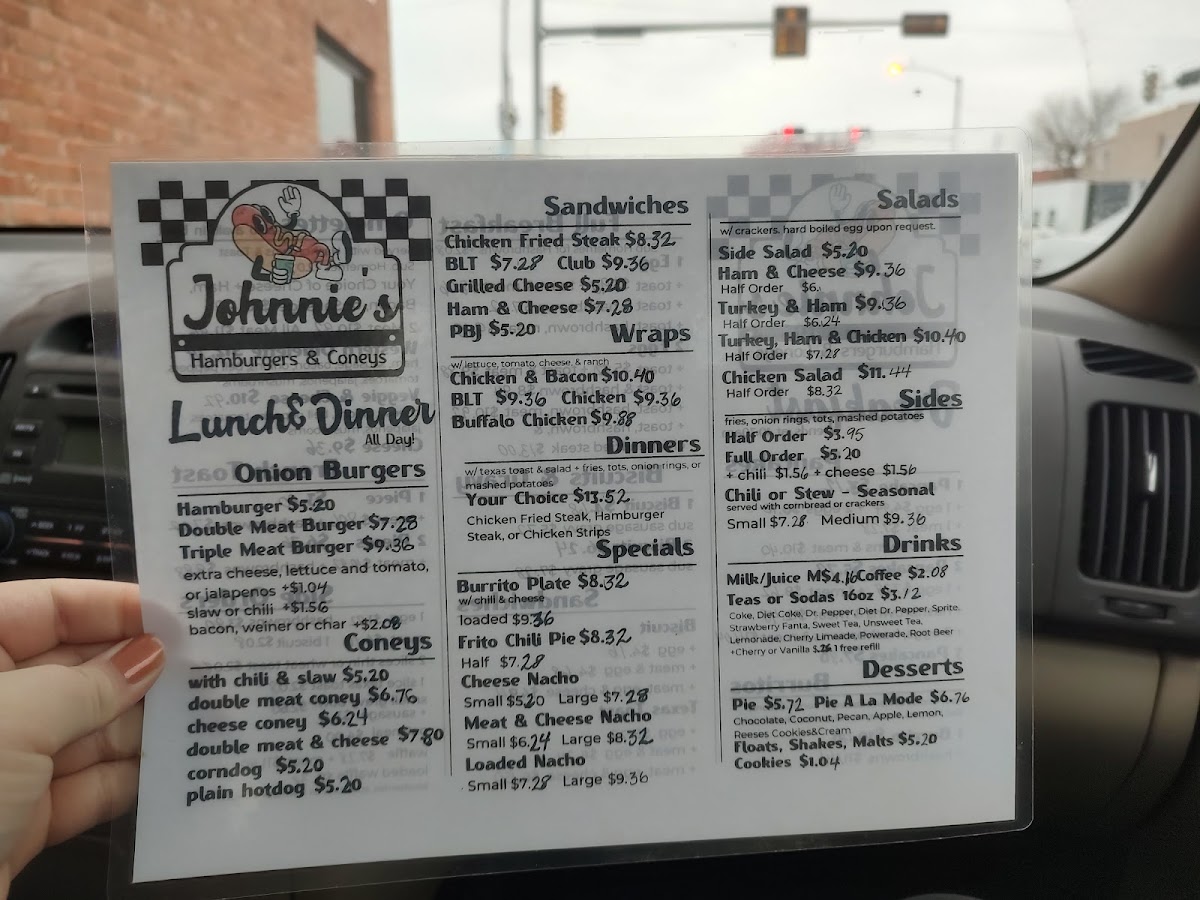 Johnnie's
Hamburgers & Coneys
Lunch & Dinner
All Day!
Onion Burgers
Hamburger $5.20
Double Meat Burger $7.28
Triple Meat Burger $9.36
extra cheese, lettuce and tomato,
or jalapenos +$1.04
slaw or chili +$1.56
bacon, weiner or char +$2.08
Coneys
with chili & slaw $5.20
double meat coney $6.76
cheese coney $6.24
double meat & cheese $7.80
corndog $5.20
plain hotdog $5.20
Sandwiches
Chicken Fried Steak $8.32
BLT $7.28 Club $9.36
Grilled Cheese $5.20
Ham & Cheese $7.28
PBJ $5.20
Wraps
w/ lettuce, tomato, cheese, & ranch
Chicken & Bacon $10.40
BLT $9.36 Chicken $9.36
Buffalo Chicken $9.88
Dinners
w/ texas toast & salad + fries, tots, onion rings, or
mashed potatoes
Your Choice $13.52
Chicken Fried Steak, Hamburger
Steak, or Chicken Strips
Specials
Burrito Plate $8.32
w/ chili & cheese
loaded $9.36
Frito Chili Pie $8.32
Half $7.28
Cheese Nacho
Small $5.20 Large $7.28
Meat & Cheese Nacho
Small $6.24 Large $8.32
Loaded Nacho
Small $7.28 Large $9.36
Salads
w/ crackers. hard boiled egg upon request.
Side Salad $5.20
Ham & Cheese $9.36
Half Order $6.
Turkey & Ham $9.36
Half Order $6.24
Turkey, Ham & Chicken $10.40
Half Order $7.28
Chicken Salad $11.44
Half Order $8.32
Sides
fries, onion rings, tots, mashed potatoes
Half Order $3.95
Full Order $5.20
+ chili $1.56 + cheese $1.56
Chili or Stew - Seasonal
served with cornbread or crackers
Small $7.28 Medium $9.36
Drinks
Milk/Juice M$4.16 Coffee $2.08
Teas or Sodas 16oz $3.12
Coke, Diet Coke, Dr. Pepper, Diet Dr. Pepper, Sprite,
Strawberry Fanta, Sweet Tea, Unsweet Tea,
Lemonade, Cherry Limeade, Powerade, Root Beer
+Cherry or Vanilla $.26 1 free refill
Desserts
Pie $5.72 Pie A La Mode $6.76
Chocolate, Coconut, Pecan, Apple, Lemon,
Reeses Cookies&Cream
Floats, Shakes, Malts $5.20
Cookies $1.04